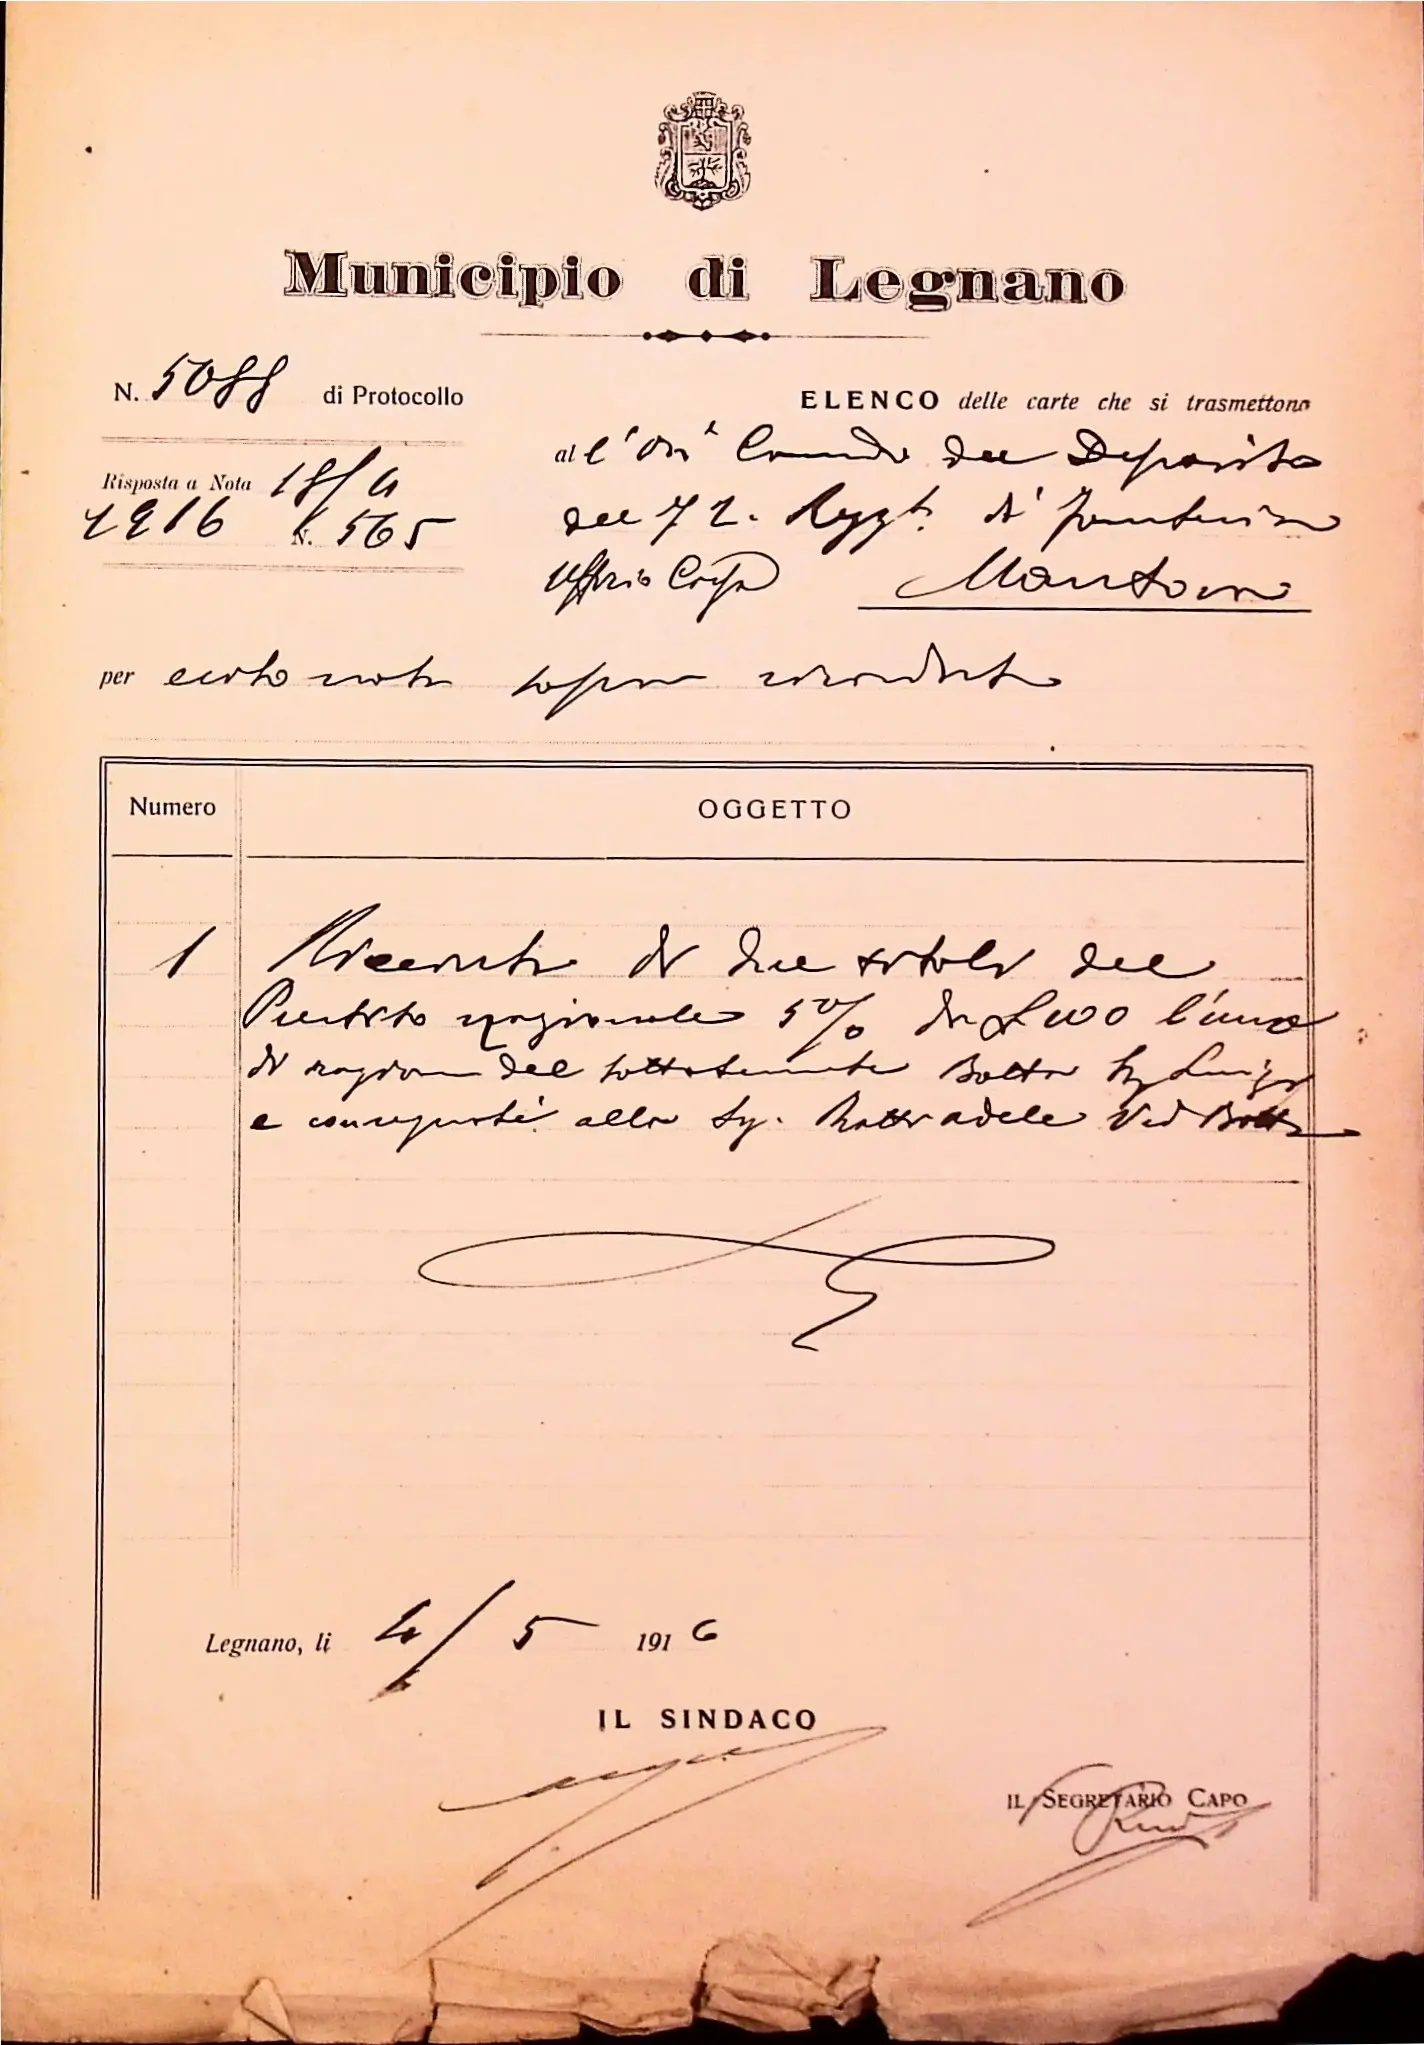 Municipio di Legnano
N. 5088 di Protocollo
ELENCO delle carte che si trasmettono
al l'On. Comando del Deposito
Risposta a Nota 18/4
1916 N. 565
del 72. Reggt. di Fanteria
Ufficio Mantova
per nota sopra ricordata
Numero OGGETTO
1 Ricevuta di due titoli del
Prestito nazionale 5% da L 100 l'uno
di ragione del sottotenente Botta Sig Luigi
e consegnati alla Sig. Ratti Adele Ved Botta
Legnano, li 4/5 1916
IL SINDACO
IL SEGRETARIO CAPO